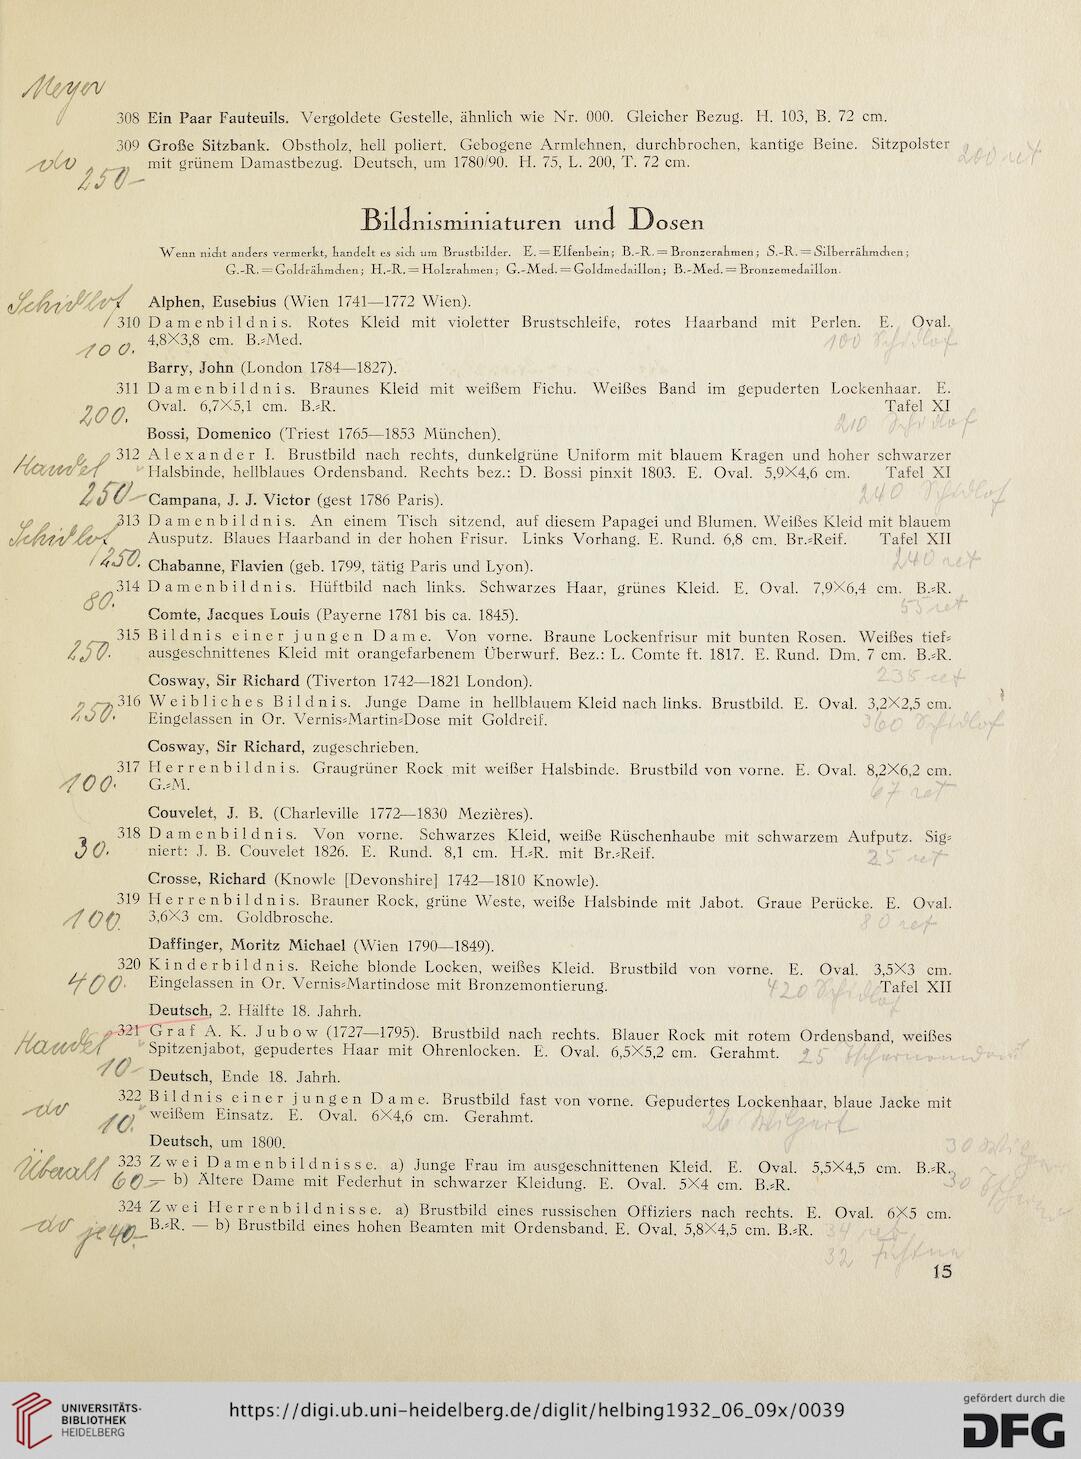 Meyer
308 Ein Paar Fauteuils. Vergoldete Gestelle, ähnlich wie Nr. 000. Gleicher Bezug. H. 103, B. 72 cm.
309 Große Sitzbank. Obstholz, hell poliert. Gebogene Armlehnen, durchbrochen, kantige Beine. Sitzpolster
do 250- mit grünem Damastbezug. Deutsch, um 1780/90. H. 75, L. 200, T. 72 cm. 200 ret
Bildnisminiaturen und Dosen
Wenn nicht anders vermerkt, handelt es sich um Brustbilder. E. = Elfenbein; B.-R. = Bronzerahmen; S.-R. = Silberrähmchen;
G.-R. = Goldrähmchen; H.-R. = Holzrahmen; G.-Med. = Goldmedaillon; B.-Med. = Bronzemedaillon.
Schidlof Alphen, Eusebius (Wien 1741—1772 Wien).
310 Damenbildnis. Rotes Kleid mit violetter Brustschleife, rotes Haarband mit Perlen. E. Oval.
100. 4,8×3,8 cm. B.=Med. 100 Schidlof
Barry, John (London 1784—1827).
311 Damenbildnis. Braunes Kleid mit weißem Fichu. Weißes Band im gepuderten Lockenhaar. E.
200. Oval. 6,7×5,1 cm. B.=R. Tafel XI
210 Schidlof
Bossi, Domenico (Triest 1765—1853 München).
312 Alexander I. Brustbild nach rechts, dunkelgrüne Uniform mit blauem Kragen und hoher schwarzer
Handel Halsbinde, hellblaues Ordensband. Rechts bez.: D. Bossi pinxit 1803. E. Oval. 5,9×4,6 cm. Tafel XI
250- Campana, J. J. Victor (gest 1786 Paris). 240 Schidlof
313 Damenbildnis. An einem Tisch sitzend, auf diesem Papagei und Blumen. Weißes Kleid mit blauem
Schidlof Ausputz. Blaues Haarband in der hohen Frisur. Links Vorhang. E. Rund. 6,8 cm. Br.=Reif. Tafel XII
250. Chabanne, Flavien (geb. 1799, tätig Paris und Lyon). 240 ret
314 Damenbildnis. Hüftbild nach links. Schwarzes Haar, grünes Kleid. E. Oval. 7,9×6,4 cm. B.=R.
80. 55 ret
Comte, Jacques Louis (Payerne 1781 bis ca. 1845).
315 Bildnis einer jungen Dame. Von vorne. Braune Lockenfrisur mit bunten Rosen. Weißes tief=
250. ausgeschnittenes Kleid mit orangefarbenem Überwurf. Bez.: L. Comte ft. 1817. E. Rund. Dm. 7 cm. B.=R.
Cosway, Sir Richard (Tiverton 1742—1821 London). 235 ret
316 Weibliches Bildnis. Junge Dame in hellblauem Kleid nach links. Brustbild. E. Oval. 3,2×2,5 cm.
250. Eingelassen in Or. Vernis=Martin=Dose mit Goldreif. 360 Schidlof
Cosway, Sir Richard, zugeschrieben.
317 Herrenbildnis. Graugrüner Rock mit weißer Halsbinde. Brustbild von vorne. E. Oval. 8,2×6,2 cm.
100. G.=M. 67 ret
Couvelet, J. B. (Charleville 1772—1830 Mezières).
318 Damenbildnis. Von vorne. Schwarzes Kleid, weiße Rüschenhaube mit schwarzem Aufputz. Sig=
30. niert: J. B. Couvelet 1826. E. Rund. 8,1 cm. H.=R. mit Br.=Reif. 25 ret
Crosse, Richard (Knowle [Devonshire] 1742—1810 Knowle).
319 Herrenbildnis. Brauner Rock, grüne Weste, weiße Halsbinde mit Jabot. Graue Perücke. E. Oval.
100. 3,6×3 cm. Goldbrosche. 80 ret
Daffinger, Moritz Michael (Wien 1790—1849).
320 Kinderbildnis. Reiche blonde Locken, weißes Kleid. Brustbild von vorne. E. Oval. 3,5×3 cm.
400. Eingelassen in Or. Vernis=Martindose mit Bronzemontierung. 420 Schidlof Tafel XII
Deutsch, 2. Hälfte 18. Jahrh.
321 Graf A. K. Jubow (1727—1795). Brustbild nach rechts. Blauer Rock mit rotem Ordensband, weißes
Handel Spitzenjabot, gepudertes Haar mit Ohrenlocken. E. Oval. 6,5×5,2 cm. Gerahmt. 25
10- Deutsch, Ende 18. Jahrh.
322 Bildnis einer jungen Dame. Brustbild fast von vorne. Gepudertes Lockenhaar, blaue Jacke mit
do 10. weißem Einsatz. E. Oval. 6×4,6 cm. Gerahmt. 26
Deutsch, um 1800. 30
323 Zwei Damenbildnisse. a) Junge Frau im ausgeschnittenen Kleid. E. Oval. 5,5×4,5 cm. B.=R.
Überall 60.- b) Ältere Dame mit Federhut in schwarzer Kleidung. E. Oval. 5×4 cm. B.=R. 30
324 Zwei Herrenbildnisse. a) Brustbild eines russischen Offiziers nach rechts. E. Oval. 6×5 cm.
do je 40.- B.=R. — b) Brustbild eines hohen Beamten mit Ordensband. E. Oval. 5,8×4,5 cm. B.=R. 34 ret
32
15
UNIVERSITÄTS-
BIBLIOTHEK
HEIDELBERG
https://digi.ub.uni-heidelberg.de/diglit/helbing1932_06_09x/0039
gefördert durch die
DFG